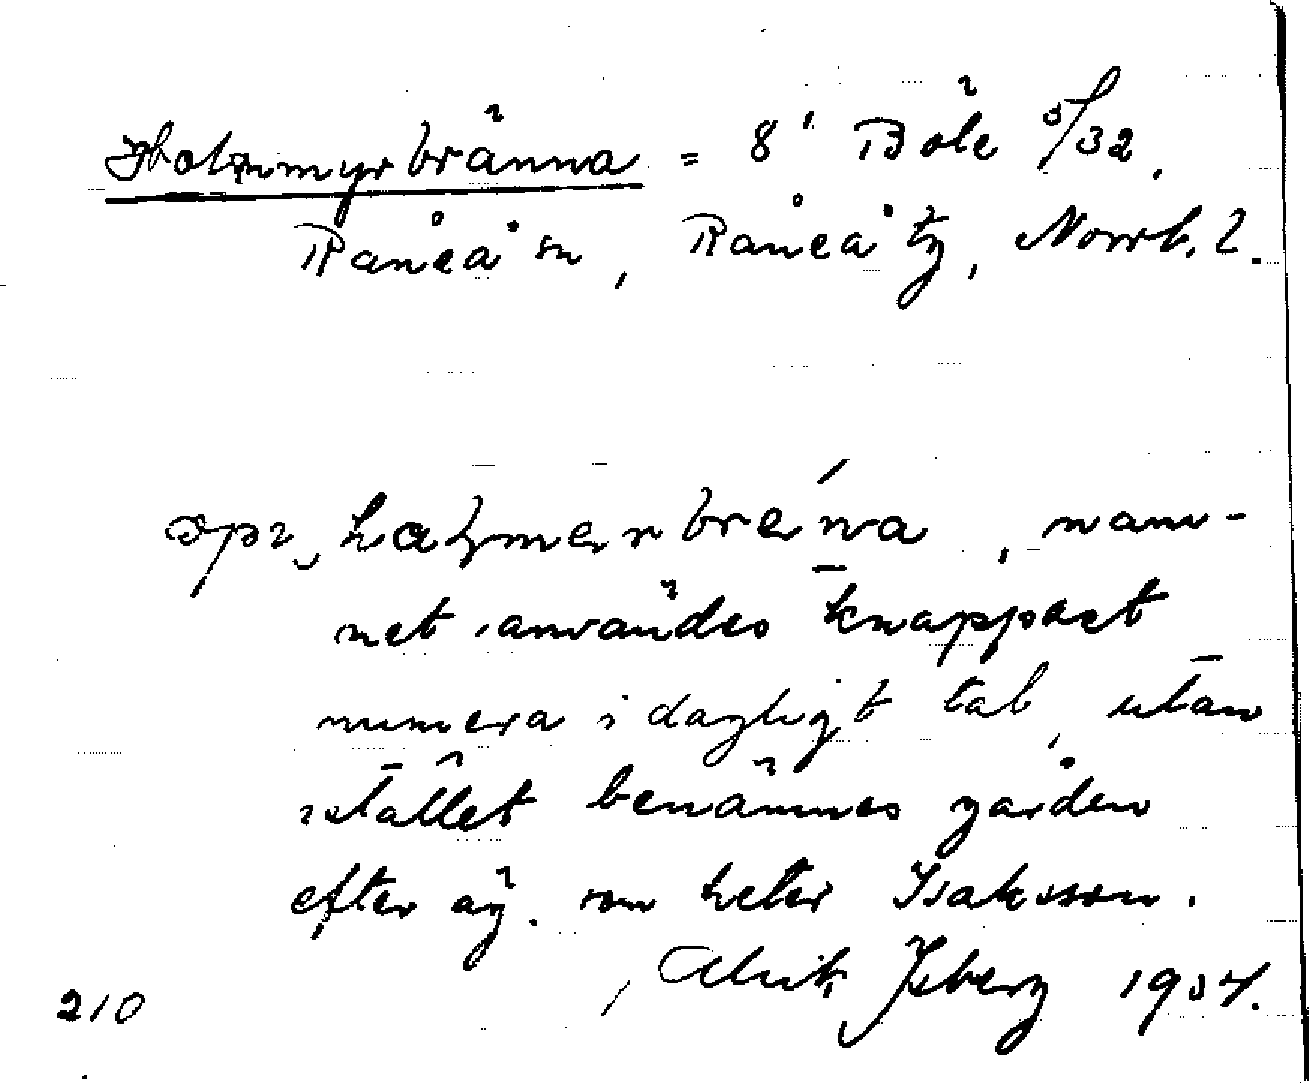 Holmmyrbränna = 8¹ Böle 5/32,
Råneå sn, Råneå tg, Norrb. l.
namn-
net användes knappast
numera i dagligt tal, utan
stället benämnes gården
efter äg. som heter Isaksson.
Alrik Isberg 1934.
210